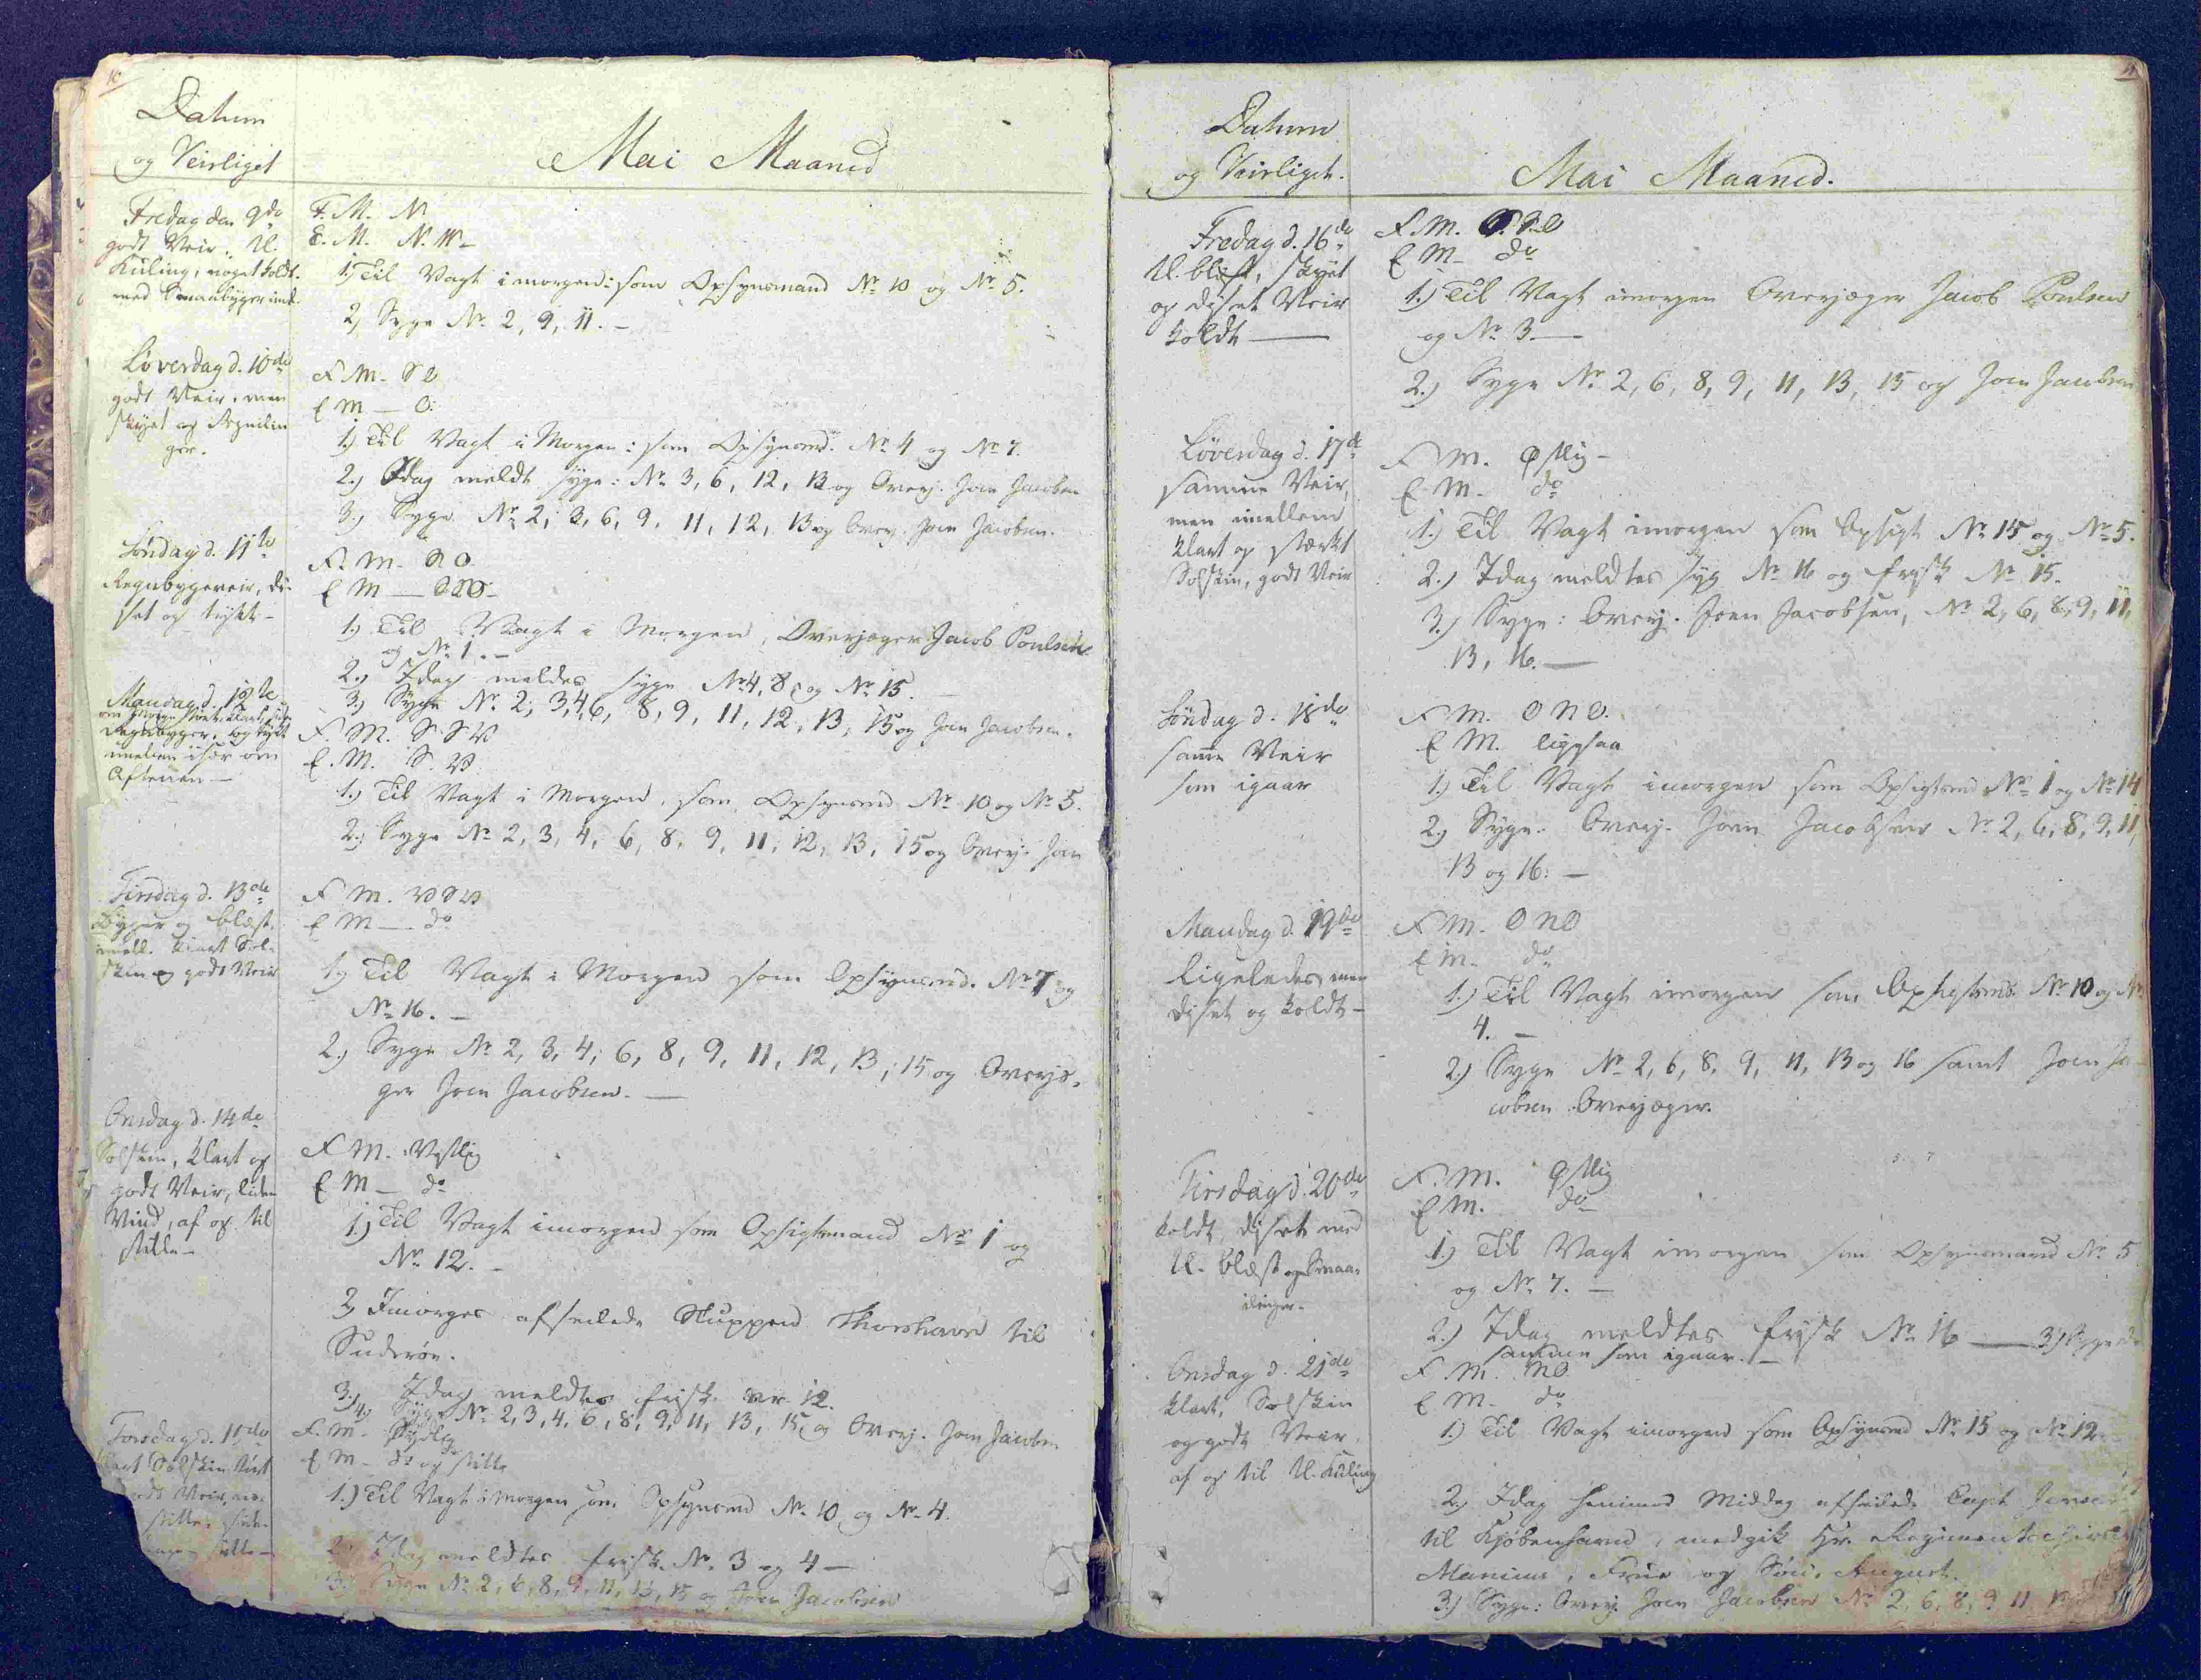 10
Datum
og Veirliget
Mai Maaned
Fredag den 9de
godt Veir, U.
Kuling, noget koldt.
med Smaabyger imel.
F. M. N
E. M. N. W
1) Til Vagt i morgen: som Opsynsmand No 10 og No 5.
2) Syge No 2, 9, 11. -
Løverdag d. 10de
godt Veir, men
skyet og Regnilin
ger.
F M. S O
E M - O.
1) Til Vagt i Morgen: som Opsynsmd. No 4 og No 7.
2.) Idag meldt syge: No 3, 6, 12, 13 og Overj. Joen Jacobsen
3.) Syge No 2, 3, 6, 9, 11, 12, 13 og Overj. Joen Jacobsen.
Søndag d. 11te
Regnbygeveir, di-
set og tykt -
F. M. S O
E M -
1.) Til Vagt i Morgen, Overjæger Jacob Poulsen
og No 1. -
2.) Idag meldes syge No 4, 8, og No 15.
3.) Syge No 2, 3, 4, 6, 8, 9, 11, 12, 13, 15 og Joen Jacobsen.
Mandag d. 12te
Regnbyger, og tykt
imellem især om
Aftenen -
F. M. S S V
E. M. S. V
1.) Til Vagt i Morgen, som Opsynsmd No 10 og No 5.
2.) Syge No 2, 3, 4, 6, 8, 9, 11, 12, 13, 15 og Overj. Joen
Tirsdag d. 13de
Byger og blæst,
imell. klart Sol-
skin og godt Veir
F M. V S V
E M - do
1.) Til Vagt i Morgen som Opsynsmd. No 7 og
No 16. -
2.) Syge No 2, 3, 4, 6, 8, 9, 11, 12, 13, 15 og Overjæ-
ger Joen Jacobsen. -
Onsdag d. 14de
Solskin, klart og
godt Veir, liden
Vind, af og til
stille -
F M. Vestlig
E M - do
1.) Til Vagt imorgen som Opsigtsmand No 1 og
No 12. -
2) Imorges afseilede Sluppen Thorshavn til
Suderøe.
3.) Idag meldtes frisk No 12.
4.) Syge No 2, 3, 4, 6, 8, 9, 11, 13, 15, og Overj. Joen Jacobsen
Torsdag d. 15de
Solskin
Veir,
stille,
stille -
F. M - Sydlig
E M - do og stille
1.) Til Vagt i Morgen som Opsynsmd No 10 og No 4.
2.) Idag meldtes frisk No 3 og 4 -
3.) Syge No 2, 6, 8, 9, 11, 13, 15 og Joen Jacobsen
Datum
og Veirliget.
Mai Maaned.
Fredag d. 16de
U. blæst, skyet
og diset Veir
koldt -
F. M.
E M - do
1.) Til Vagt imorgen Overjæger Jacob Poulsen
og No 3 -
2.) Syge No 2, 6, 8, 9, 11, 13, 15 og Joen Jacobsen
Løverdag d. 17de
samme Veir,
men imellem
klart og stærkt
Solskin, godt Veir
F M. Østlig -
E M - do
1.) Til Vagt imorgen som Opsigt No 15 og No 5.
2.) Idag meldtes syg No 16 og frisk No 15.
3.) Syge: Overj. Joen Jacobsen, No 2, 6, 8, 9, 11,
13, 16. -
Søndag d. 18de
samme Veir
som igaar
F M. O N O.
E M. ligesaa
1.) Til Vagt imorgen som Opsigtsmd No 1 og No 14
2.) Syge. Overj. Joen Jacobsen No 2, 6, 8, 9, 11,
13 og 16. -
Mandag d. 19de
ligeledes, men
diset og koldt -
F M. O N O
E M. do
1.) Til Vagt imorgen som Opsigtsmd No 10 og No
4. -
2.) Syge No 2, 6, 8, 9, 11, 13 og 16 samt Joen Ja-
cobsen Overjæger.
Tirsdag d. 20de
koldt, diset med
U. blæst og Smaa-
ilinger -
F. M. Østlig
E M. do
1.) Til Vagt imorgen som Opsynsmand No 5
og No 7. -
2.) Idag meldtes frisk No 16 - 3.) Syge de
samme som igaar. -
Onsdag d. 21de
klart, Solskin
og godt Veir,
af og til U. Kuling
F M. N O
E M - do
1.) Til Vagt imorgen som Opsynsmd No 15 og No 12 -
2.) Idag henimod Middag afseilede Capt Jensen
til Kjøbenhavn, medgik Hr. Regimentschirur
Manicus, Frue og Søn August.
3.) Syge: Overj. Joen Jacobsen No 2, 6, 8, 9, 11, 13